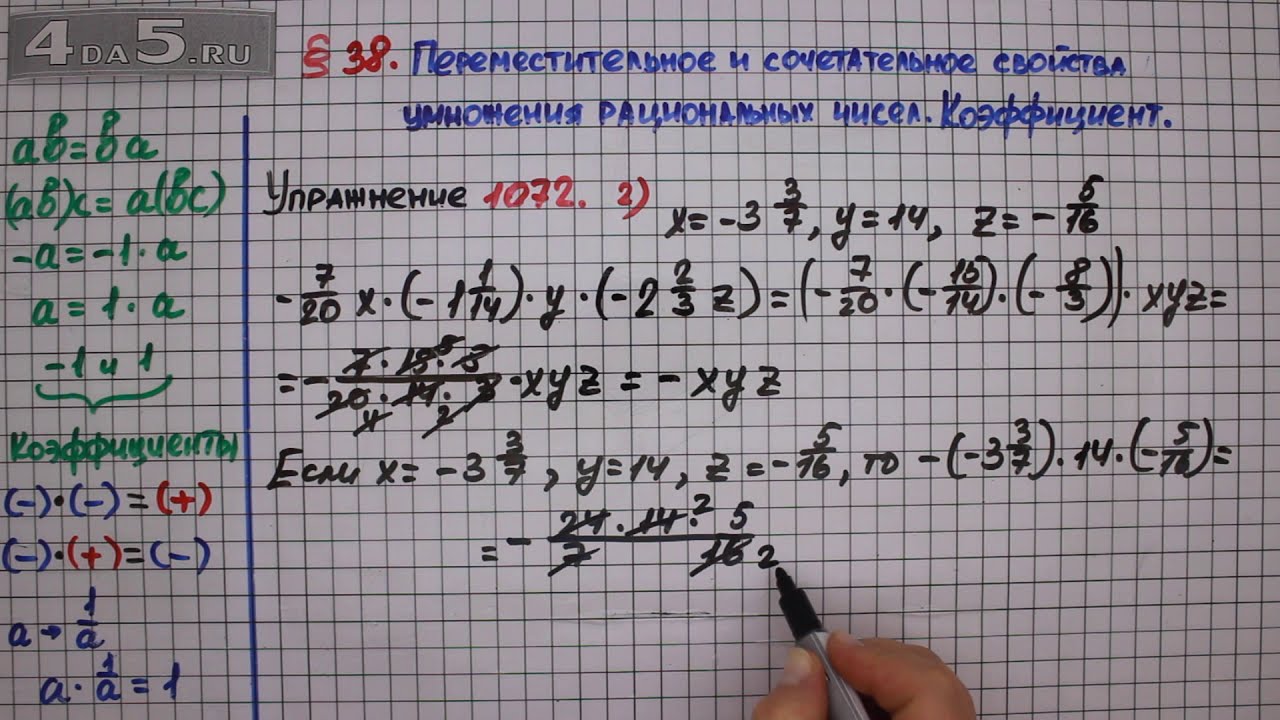 4DA5.RU
§ 38. Переместительное и сочетательное свойства
умножения рациональных чисел. Коэффициент.
ab=ba
(ab)c=a(bc)
-a=-1·a
a=1·a
-1 и 1
Коэффициенты
(-)·(-)=(+)
(-)·(+)=(-)
a→1/a
a·1/a=1
Упражнение 1072. 2) x=-3 3/7, y=14, z=-5/16
-7/20 x·(-1 1/14)·y·(-2 2/3 z)=(-7/20·(-15/14)·(-8/3))·xyz=
=-(7·15·8)/(20·14·3)·xyz=-xyz
Если x=-3 3/7, y=14, z=-5/16, то -(-3 3/7)·14·(-5/16)=
=-(24·14·5)/(7 16)
2
2